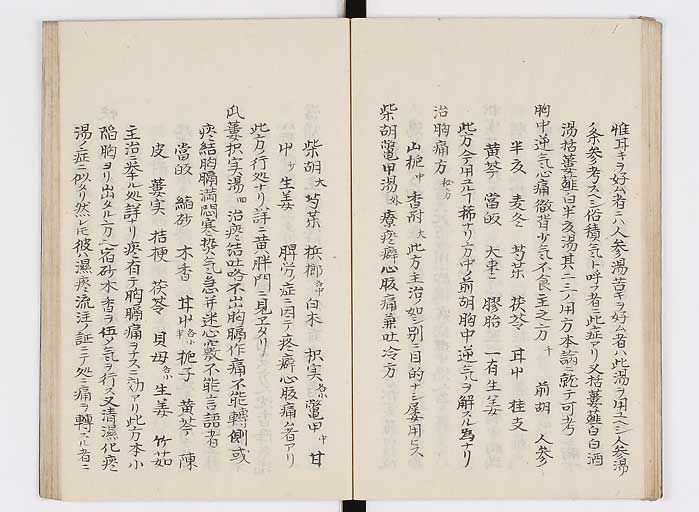 雅耳キヲ好ム者ニハ人参湯苦キヲ好ム者ハ此湯ヲ用ユヘシ人参湯
ノ条参考スヘシ俗積気ト呼フ者ニ此症アリ又枯蔞薤白白酒
湯枯蔞薤白半夏湯其ニ三ノ用方本病ニ就テ可考
胸中逆気心痛徹背少気不食主之方 十 前胡 人参
半夏 麦冬 芍薬 茯苓 甘中 桂支
黄芩 當皈 大棗 膠飴 一有生姜
此方今用テ稀ナリ方中ノ前胡胸中逆気ヲ解スル為ナリ
治胸痛方
山梔中 香附大 此方主治ノ如シ別ニ目的ナシ屡用ユス
柴胡鼈甲湯外 療痃癖心腹痛兼吐冷方
柴胡大 芍薬 檳榔各中 白朮 枳実各小 鼈甲中 甘
中 生姜 脾労症ニ因テ痃癖心腹痛ム者アリ
此方ノ行処ナリ詳ニ黄胖門ニ見エタリ
瓜蔞枳実湯回 治痰結咯吐不出胸膈作痛不能轉側或
痰結胸膈満悶寒熱気急并迷心竅不能言語者
當皈 縮砂 木香 甘中 梔子 黄芩 陳
皮 蔞実 桔梗 茯苓 貝母各小 生姜 竹茹
主治ニ挙ル処詳ナリ痰有テ胸膈痛ヲナスニ効アリ此方本小
陥胸ヨリ出タル方ヘ宿砂木香ヲ伍シ気ヲ行ス又清濕化痰
湯ノ症ニ似タリ然レモ彼ハ濕痰流注ノ証ニテ処ニ痛ヲ轉スル者ニ